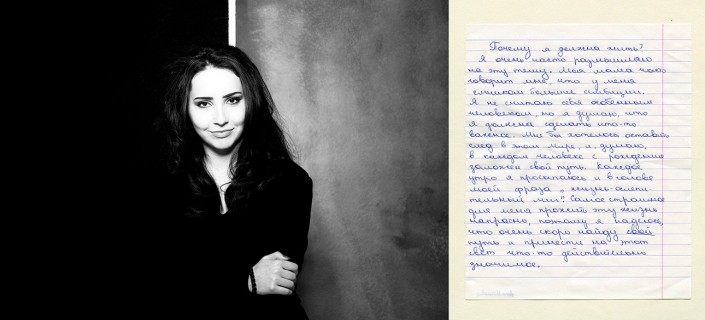 Почему я должна жить?
Я очень часто размышляю
на эту тему. Моя мама часто
говорит мне, что у меня
слишком большие амбиции.
Я не считаю себя особенным
человеком, но я думаю, что
я должна сделать что-то
важное. Мне бы хотелось оставить
след в этом мире, и, думаю,
в каждом человеке с рождения
заложен свой путь. Каждое
утро я просыпаюсь и в голове
моей фраза „жизнь-ослепи-
тельный миг"! Самое страшное
для меня прожить эту жизнь
напрасно, поэтому я надеюсь,
что очень скоро найду свой
путь и принести на этот
свет что-то действительно
значимое.